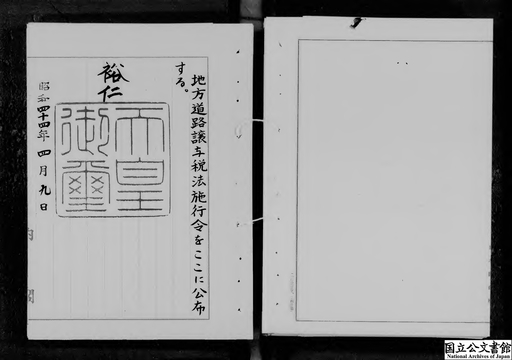 地方道路譲与税法施行令をここに公布
する。
裕仁
天皇
御璽
昭和四十四年四月九日
国立公文書館
National Archives of Japan